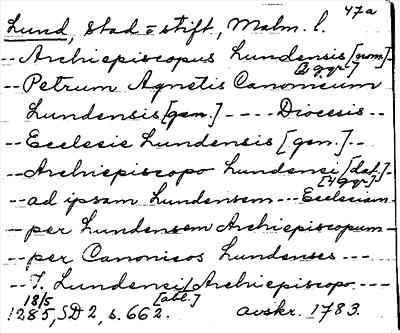 47a
Lund, stad = stift, Malm. l.
-- Archiepiscopus Lundensis [nom]--
[2 ggr]
-- Petrum Agnetis Canonicum
Lundensis [gen.] ---- Diocesis --
-- Ecclesie Lundensis [gen.] --
-- Archiepiscopo Lundensi [dat.]--
[4 ggr]
-- ad ipsam Lundensem --- Ecclesiam--
-- per Lundensem Archiepiscopum--
-- per Canonicos Lundenses ---
-- J. Lundensi Archiepiscopo ----
[abl.]
18/5
1285, SD 2, s. 662. avskr. 1783.